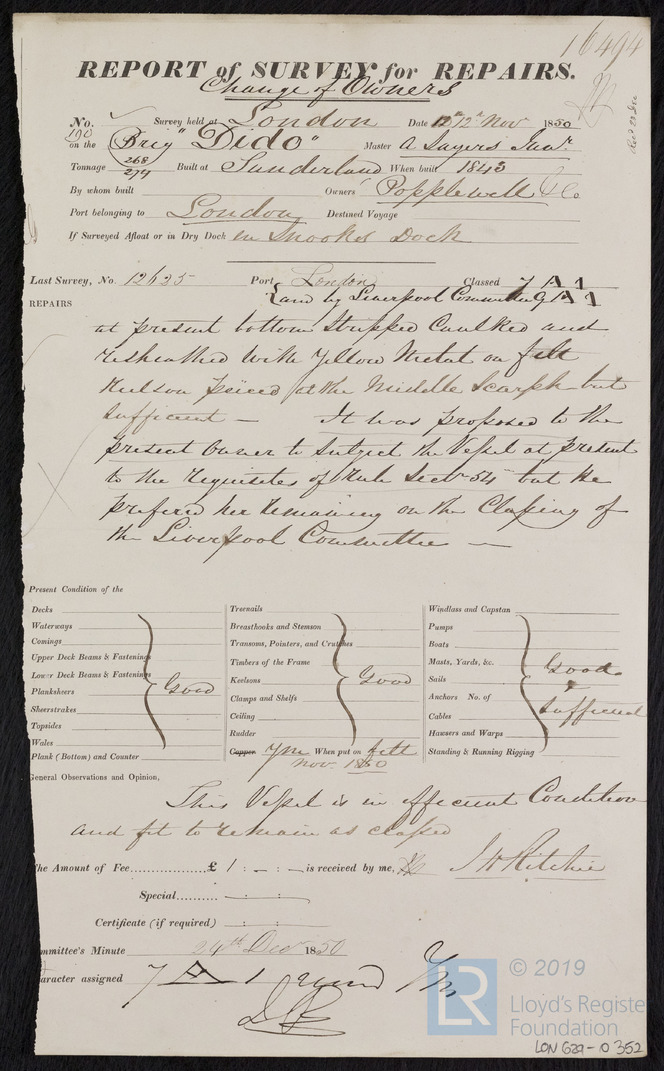 16494
REPORT of SURVEY for REPAIRS.
Change of Owners
No. 190 Survey held at London Date 12th Nov 1850
Recd 23 Dec
on the Brig "Dido" Master A Sayers Junr
Tonnage 268 274 Built at Sunderland When built 1843
By whom built Owners Popplewell & Co
Port belonging to London Destined Voyage
If Surveyed Afloat or in Dry Dock in Snooks Dock
Last Survey, No. 12625 Port London Classed 7 A 1
{and by Liverpool Committee 9 A 1
REPAIRS
at present bottom Stripped Caulked and
resheathed with Yellow Metal on felt
Keelson pieced at the Middle Scarph but
sufficient — It was proposed to the
present Owner to Subject the Vessel at present
to the requisites of Rule Sectn 54 but he
prefered her remaining on the Classing of
the Liverpool Committee —
Present Condition of the
Decks
Waterways
Comings
Upper Deck Beams & Fastenings
Lower Deck Beams & Fastenings
Planksheers Good
Sheerstrakes
Topsides
Wales
Plank (Bottom) and Counter
Treenails
Breasthooks and Stemson
Transoms, Pointers, and Crutches
Timbers of the Frame
Keelsons Good
Clamps and Shelfs
Ceiling
Rudder
Copper YM When put on felt
Nov. 1850
Windlass and Capstan
Pumps
Boats
Masts, Yards, &c. Good
Sails &
Anchors No. of Sufficient
Cables
Hawsers and Warps
Standing & Running Rigging
General Observations and Opinion,
This Vessel is in efficient Condition
and fit to remain as classed
he Amount of Fee £ 1 : – : – is received by me, J H Ritchie
Special : :
Certificate (if required) : :
mmittee's Minute 24th Decr 1850
aracter assigned 7 A 1 YM
© 2019
LR
Lloyd's Registe
Foundation
LON 629-0352